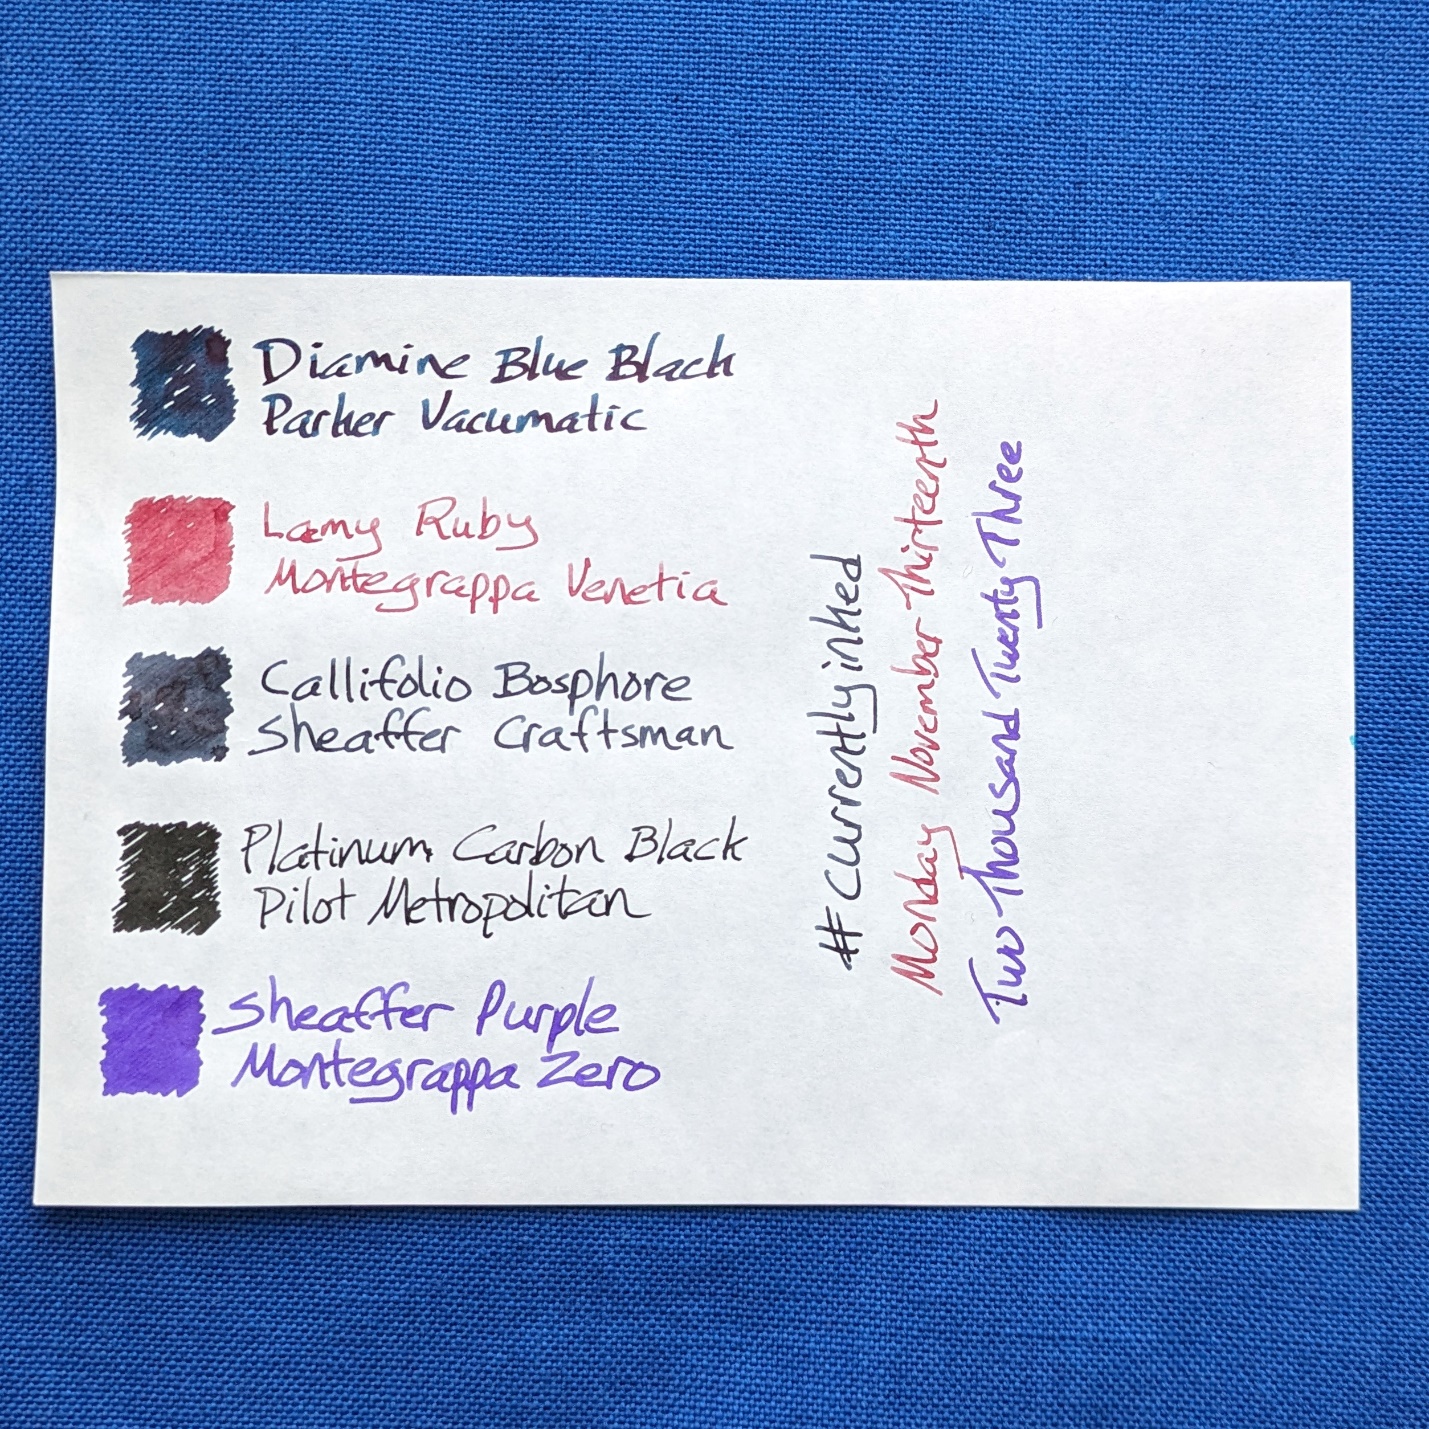 Diamine Blue Black
Parker Vacumatic
Lamy Ruby
Montegrappa Venetia
Callifolio Bosphore
Sheaffer Craftsman
Platinum Carbon Black
Pilot Metropolitan
Sheaffer Purple
Montegrappa Zero
#Currently inked
Monday November Thirteenth
Two Thousand Twenty Three